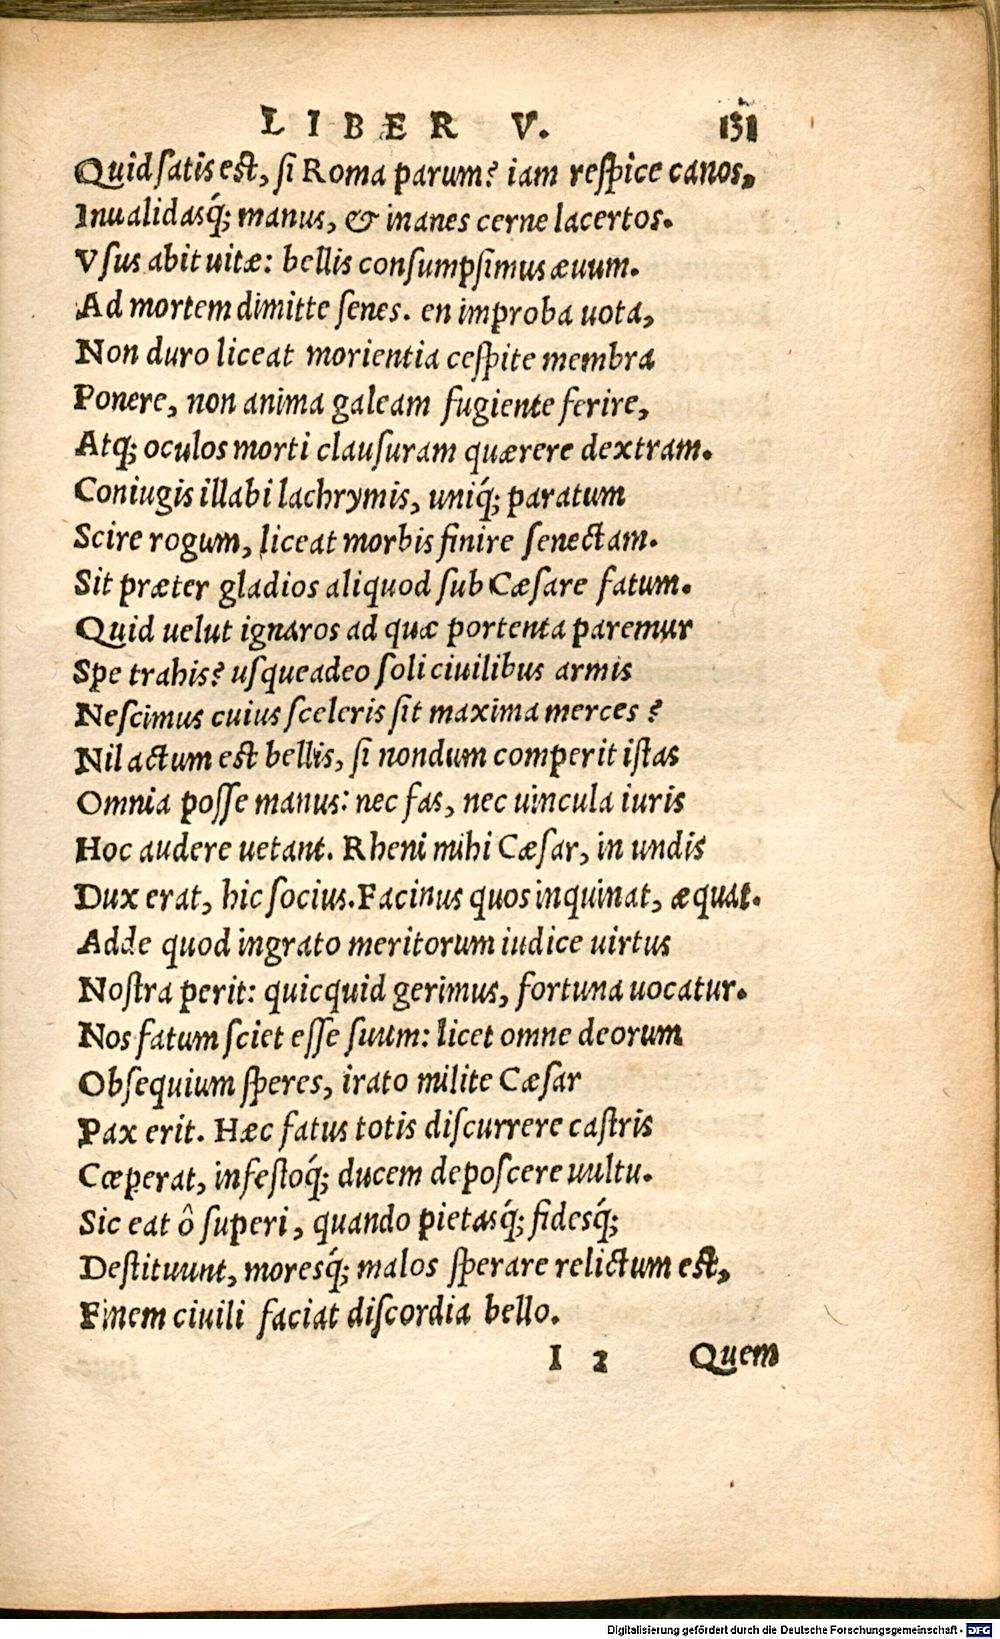 LIBER V. 131
Quid satis est, si Roma parum? iam respice canos,
Inualidasq́; manus, & inanes cerne lacertos.
Vsus abit uitæ: bellis consumpsimus æuum.
Ad mortem dimitte senes. en improba uota,
Non duro liceat morientia cespite membra
Ponere, non anima galeam fugiente ferire,
Atq; oculos morti clausuram quærere dextram.
Coniugis illabi lachrymis, uniq́; paratum
Scire rogum, liceat morbis finire senectam.
Sit præter gladios aliquod sub Cæsare fatum.
Quid uelut ignaros ad quæ portenta paremur
Spe trahis? usqueadeo soli ciuilibus armis
Nescimus cuius sceleris sit maxima merces?
Nil actum est bellis, si nondum comperit istas
Omnia posse manus: nec fas, nec uincula iuris
Hoc audere uetant. Rheni mihi Cæsar, in undis
Dux erat, hic socius. Facinus quos inquinat, æquat.
Adde quod ingrato meritorum iudice uirtus
Nostra perit: quicquid gerimus, fortuna uocatur.
Nos fatum sciet esse suum: licet omne deorum
Obsequium speres, irato milite Cæsar
Pax erit. Hæc fatus totis discurrere castris
Cœperat, infestoq́; ducem deposcere uultu.
Sic eat ô superi, quando pietasq́; fidesq́;
Destituunt, moresq́; malos sperare relictum est,
Finem ciuili faciat discordia bello.
I 2 Quem
Digitalisierung gefördert durch die Deutsche Forschungsgemeinschaft - DFG